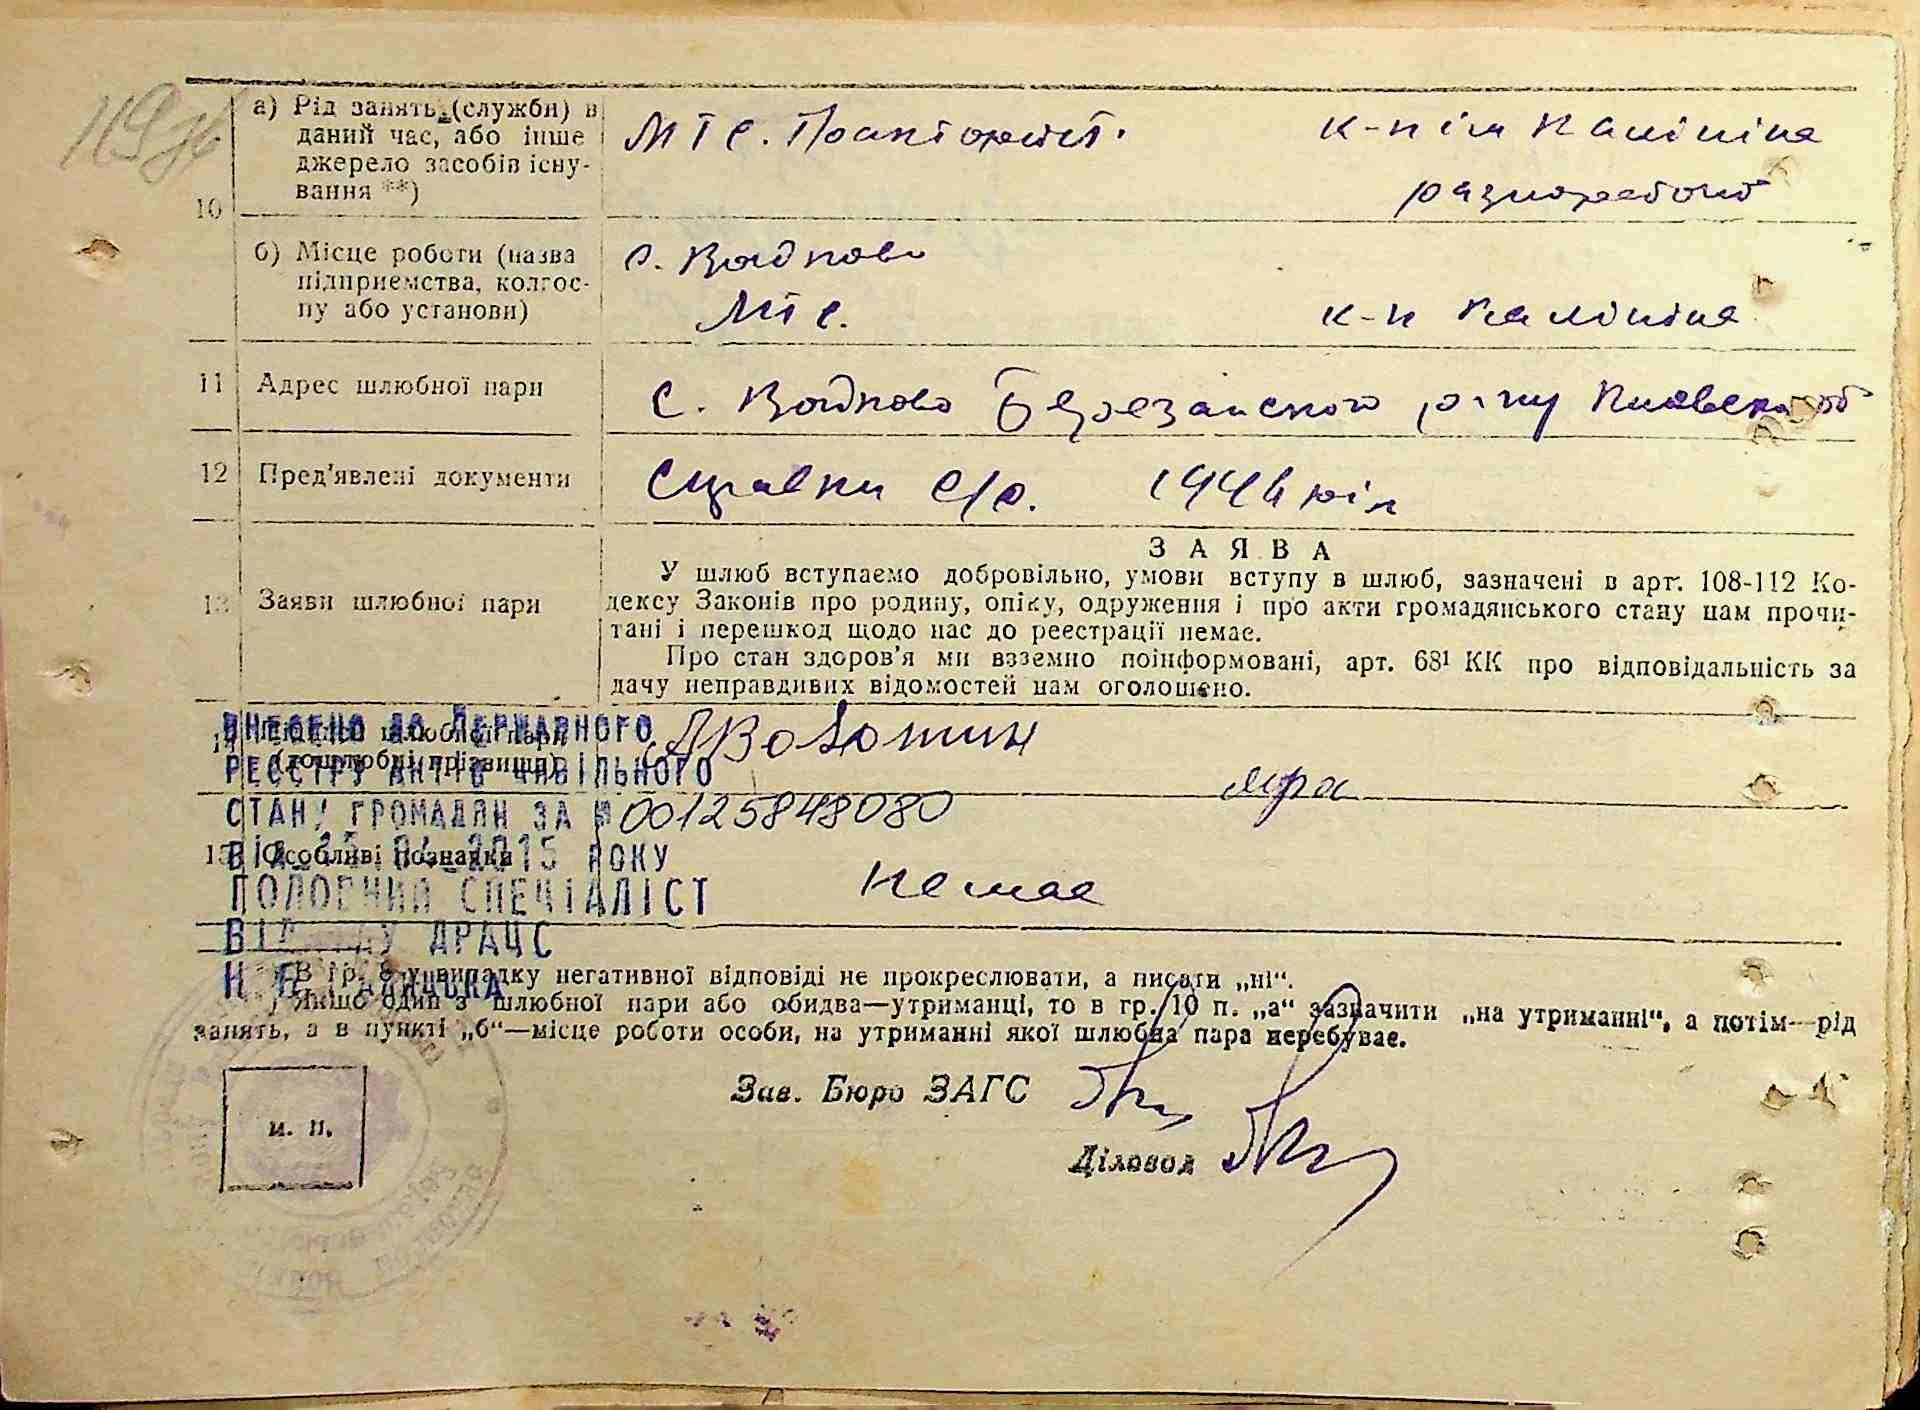 10
а) Рід занять (служби) в
даний час, або інше
джерело засобів існу-
вання **)
МТС. Тракторист.
к-п ім Калініна
разноробочий
б) Місце роботи (назва
підприємства, колгос-
пу або установи)
с. Войтово
МТС.
к-п Калініна
11 Адрес шлюбної пари
с. Войтово Березанського р-ну Київської об
12 Пред'явлені документи
Справки с/р. 1944 рік
13 Заяви шлюбної пари
ЗАЯВА
У шлюб вступаємо добровільно, умови вступу в шлюб, зазначені в арт. 108-112 Ко-
дексу Законів про родину, опіку, одруження і про акти громадянського стану нам прочи-
тані і перешкод щодо нас до реєстрації немає.
Про стан здоров'я ми взаємно поінформовані, арт. 68¹ КК про відповідальність за
дачу неправдивих відомостей нам оголошено.
14 шлюбної пари
(дошлюбні прізвища)
ВНЕСЕНО ДО ДЕРЖАВНОГО
РЕЄСТРУ АКТІВ ЦИВІЛЬНОГО
СТАНУ ГРОМАДЯН ЗА № 00125848080
2015 РОКУ
ГОЛОВНИЙ СПЕЦІАЛІСТ
ВІДДІЛУ ДРАЦС
15 Особливі познаки
Немає
В гр. 8 у випадку негативної відповіді не прокреслювати, а писати „ні“.
Якщо один з шлюбної пари або обидва—утриманці, то в гр. 10 п. „а“ зазначити „на утриманні“, а потім—рід
занять, а в пункті „б“—місце роботи особи, на утриманні якої шлюбна пара перебуває.
Зав. Бюро ЗАГС
м. п.
Діловод